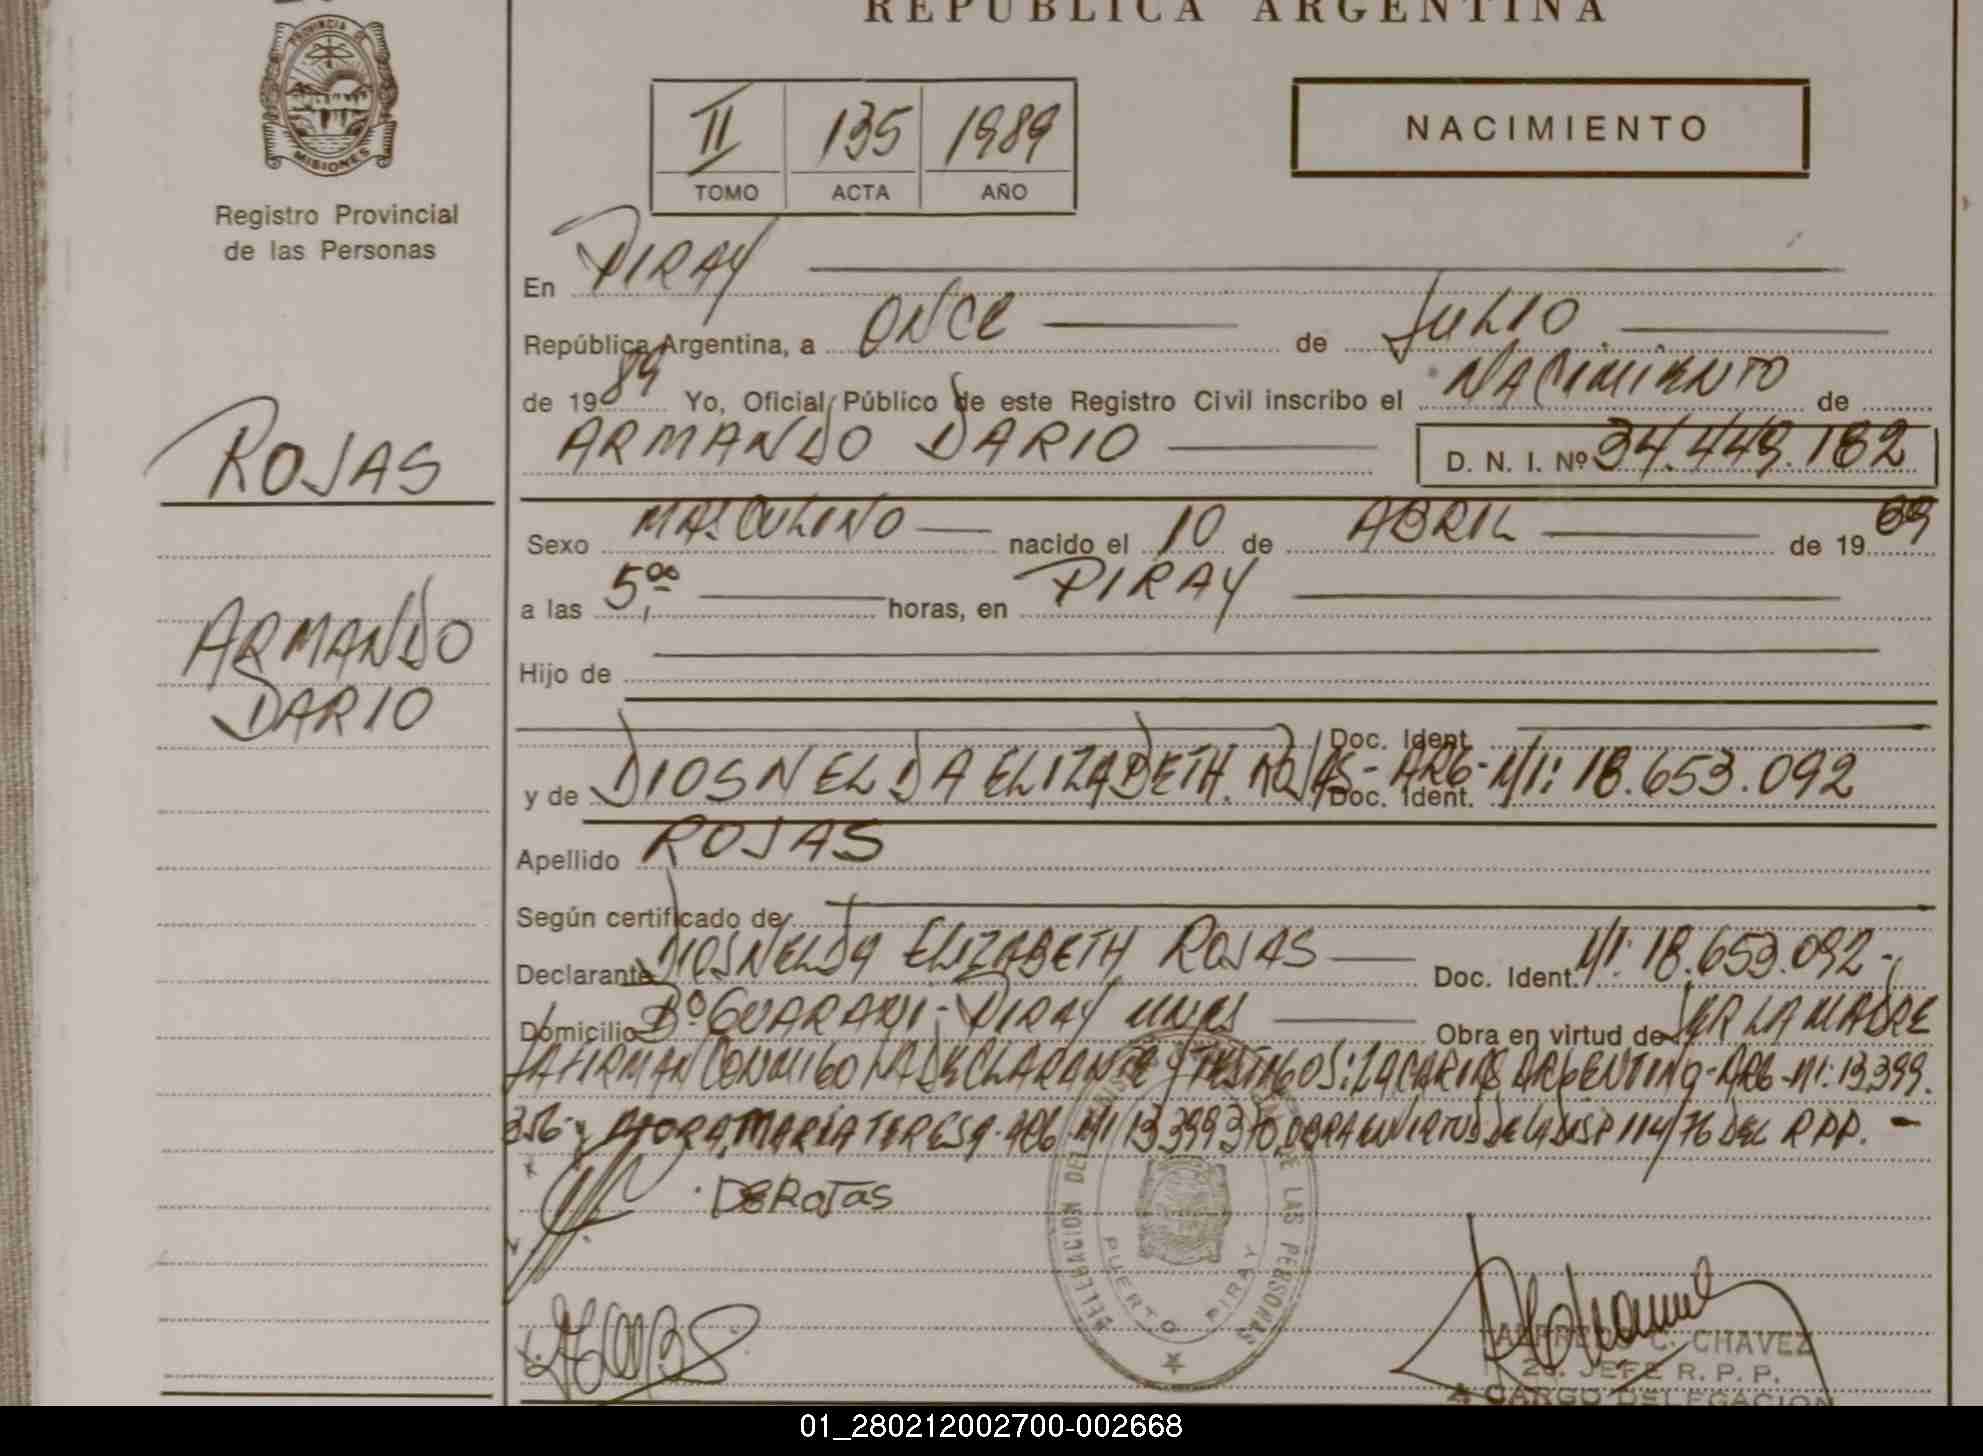 REPUBLICA ARGENTINA
PROVINCIA DE
MISIONES
Registro Provincial
de las Personas
II 135 1989
TOMO ACTA AÑO
NACIMIENTO
En PIRAY
República Argentina, a ONCE de JULIO
de 1989 Yo, Oficial Público de este Registro Civil inscribo el NACIMIENTO de
ARMANDO DARIO D. N. I. Nº 34.449.182
ROJAS
ARMANDO
DARIO
Sexo MASCULINO nacido el 10 de ABRIL de 1989
a las 5,00 horas, en PIRAY
Hijo de
Doc. Ident.
y de DIOSNELDA ELIZABETH ROJAS - ARG - Doc. Ident. MI: 18.653.092
Apellido ROJAS
Según certificado de
Declarante DIOSNELDA ELIZABETH ROJAS Doc. Ident. MI: 18.653.092-
Domicilio Bº GUARANI - PIRAY Obra en virtud de SER LA MADRE
FIRMAN CONMIGO LA DECLARANTE Y TESTIGOS: ARGENTINO - ARG - MI: 13.399.
356 y MARIA TERESA - ARG MI 13.399.370 OBRA EN VIRTUD DE LA DISP 114/76 DEL RPP. -
DE ROJAS
DELEGACION DEL DE LAS PERSONAS
PUERTO PIRAY
ALFREDO C. CHAVEZ
2º. JEFE R. P. P.
A CARGO DELEGACION
01_280212002700-002668